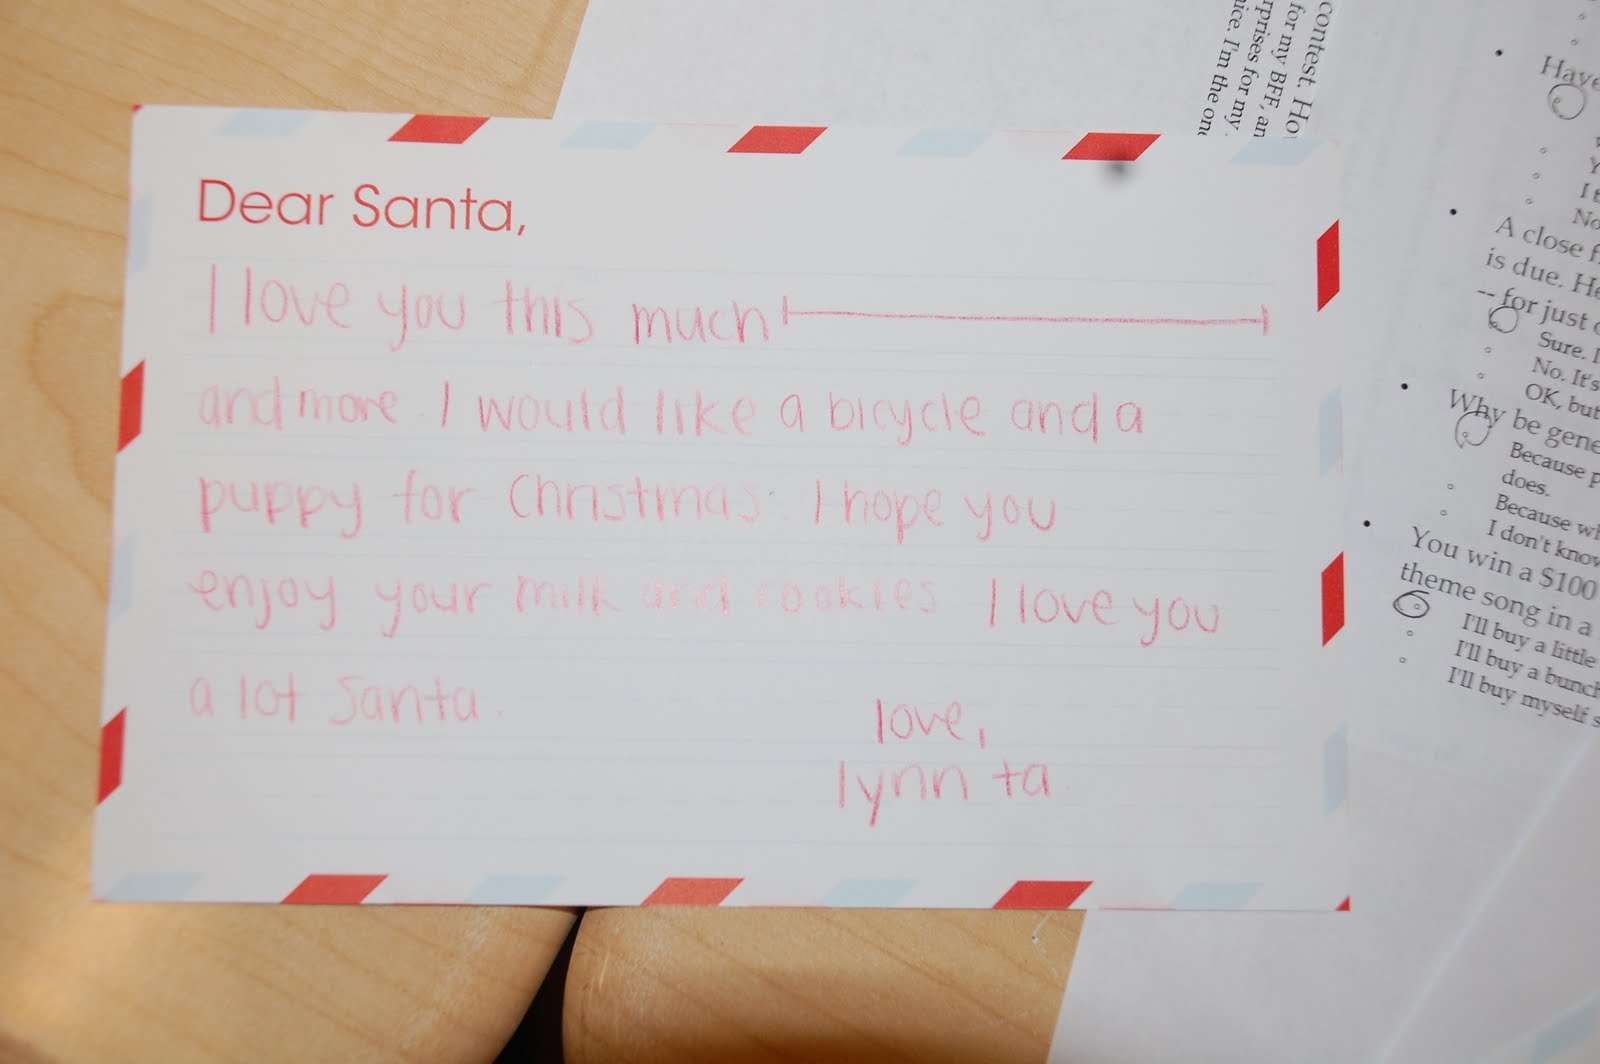 Dear Santa,
I love you this much
and more. I would like a bicycle and a
puppy for Christmas. I hope you
enjoy your milk and cookies I love you
a lot Santa.
love,
lynn ta.
contest.
for my BFF,
for my
I'm the
Have
A close
is due. He
-- for just
Sure.
No. It's
OK, but
Why be
Because
does.
Because
I don't know
You win a $100
theme song in a
I'll buy a little
I'll buy a bunch
I'll buy myself